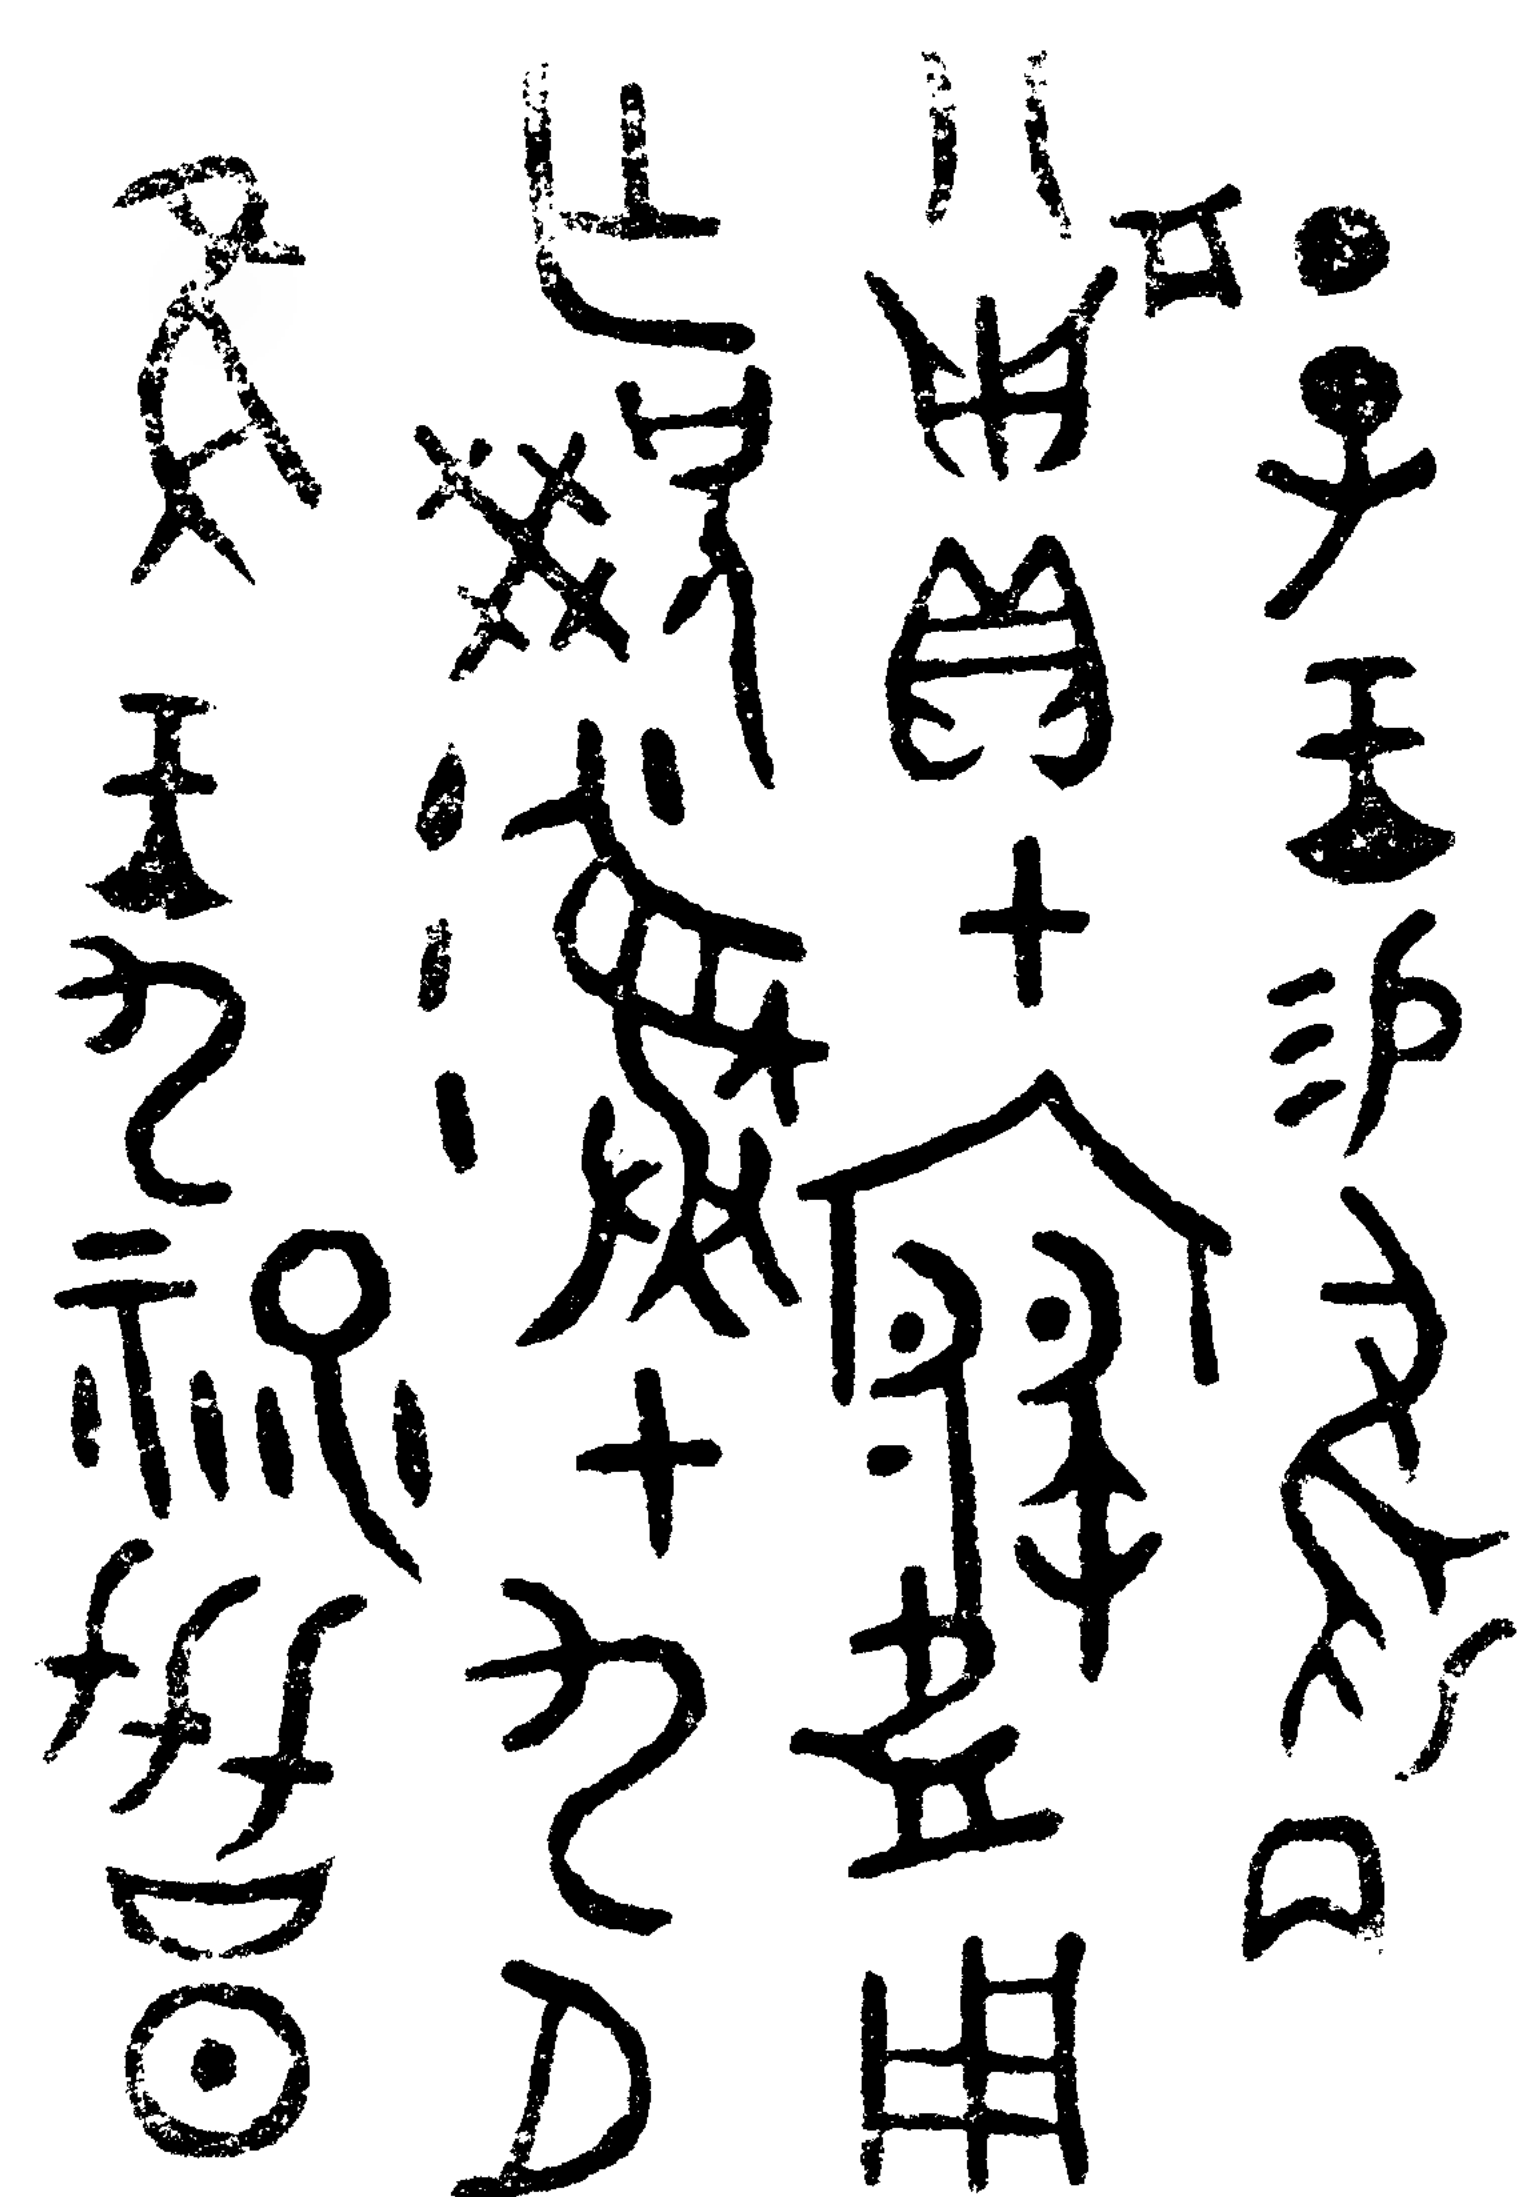 丁子王易
貝才寢用
乍兄癸彝才九月
隹王九祀劦日